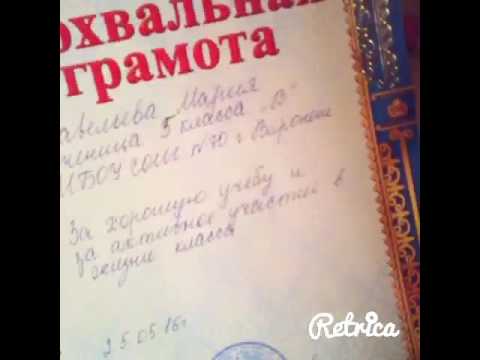 охвальная
грамота
авельева Мария
ученица 5 класса "В"
МБОУ СОШ №70 г. Воронеж
За хорошую учебу и
за активное участие в
жизни класса
25.05.16г
Retrica